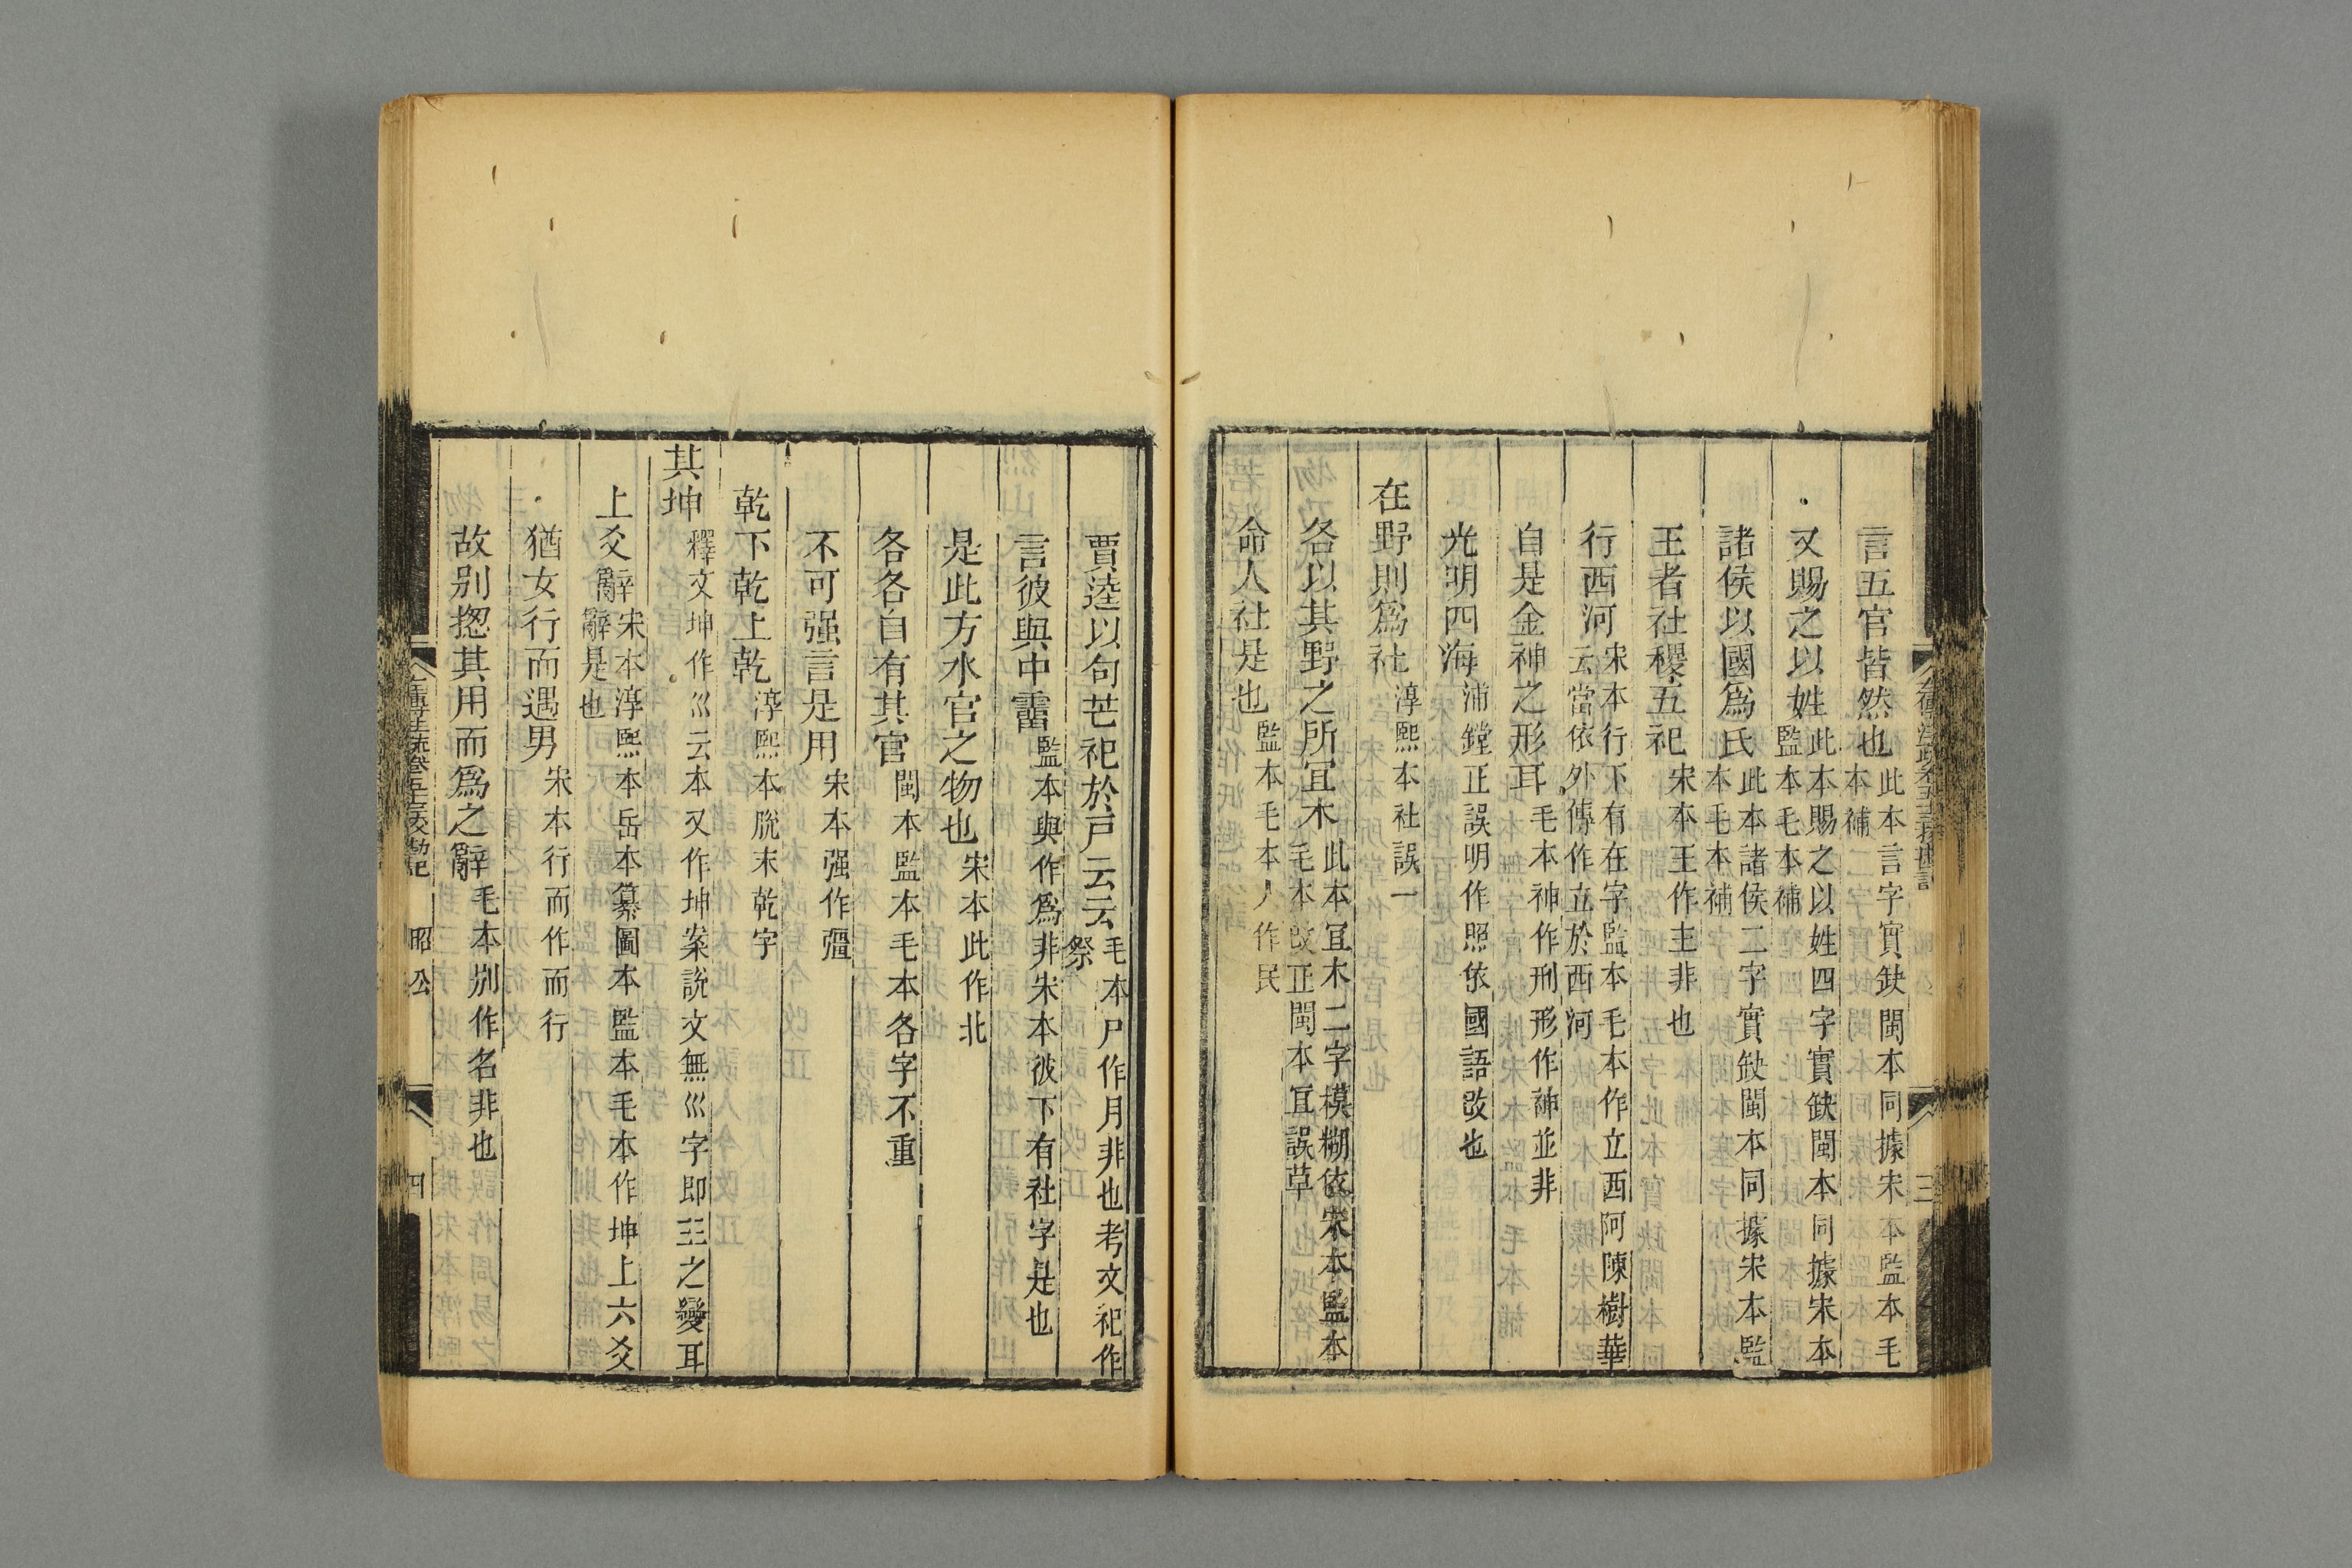 言五官皆然也此本言字實缺閩本同據宋本監本毛本補
又賜之以姓此本賜之以姓四字實缺閩本同據宋本監本毛本補
諸侯以國爲氏此本諸侯二字實缺閩本同據宋本監本毛本補
王者社稷五祀宋本王作主非也
行西河宋本行下有在字監本毛本作立西阿陳樹華云當依外傳作立於西河
自是金神之形耳毛本神作刑形作神並非
光明四海浦鏜正誤明作照依國語改也
在野則爲社淳熙本社誤一
各以其野之所宜木此本宜木二字模糊依宋本監本毛本改正閩本宜誤草
命人社是也監本毛本人作民
賈逵以句芒祀於戸云云毛本尸作月非也考文祀作祭
言彼與中霤監本與作爲非宋本彼下有社字是也
是此方水官之物也宋本此作北
各各自有其官閩本監本毛本各字不重
不可强言是用宋本强作彊
乾下乾上乾淳熙本脫末乾字
其坤釋文坤作巛云本又作坤案說文無巛字即三之變耳
上爻辭宋本淳熙本岳本纂圖本監本毛本作坤上六爻辭是也
猶女行而遇男宋本行而作而行
故别揔其用而爲之辭毛本别作名非也
昭公